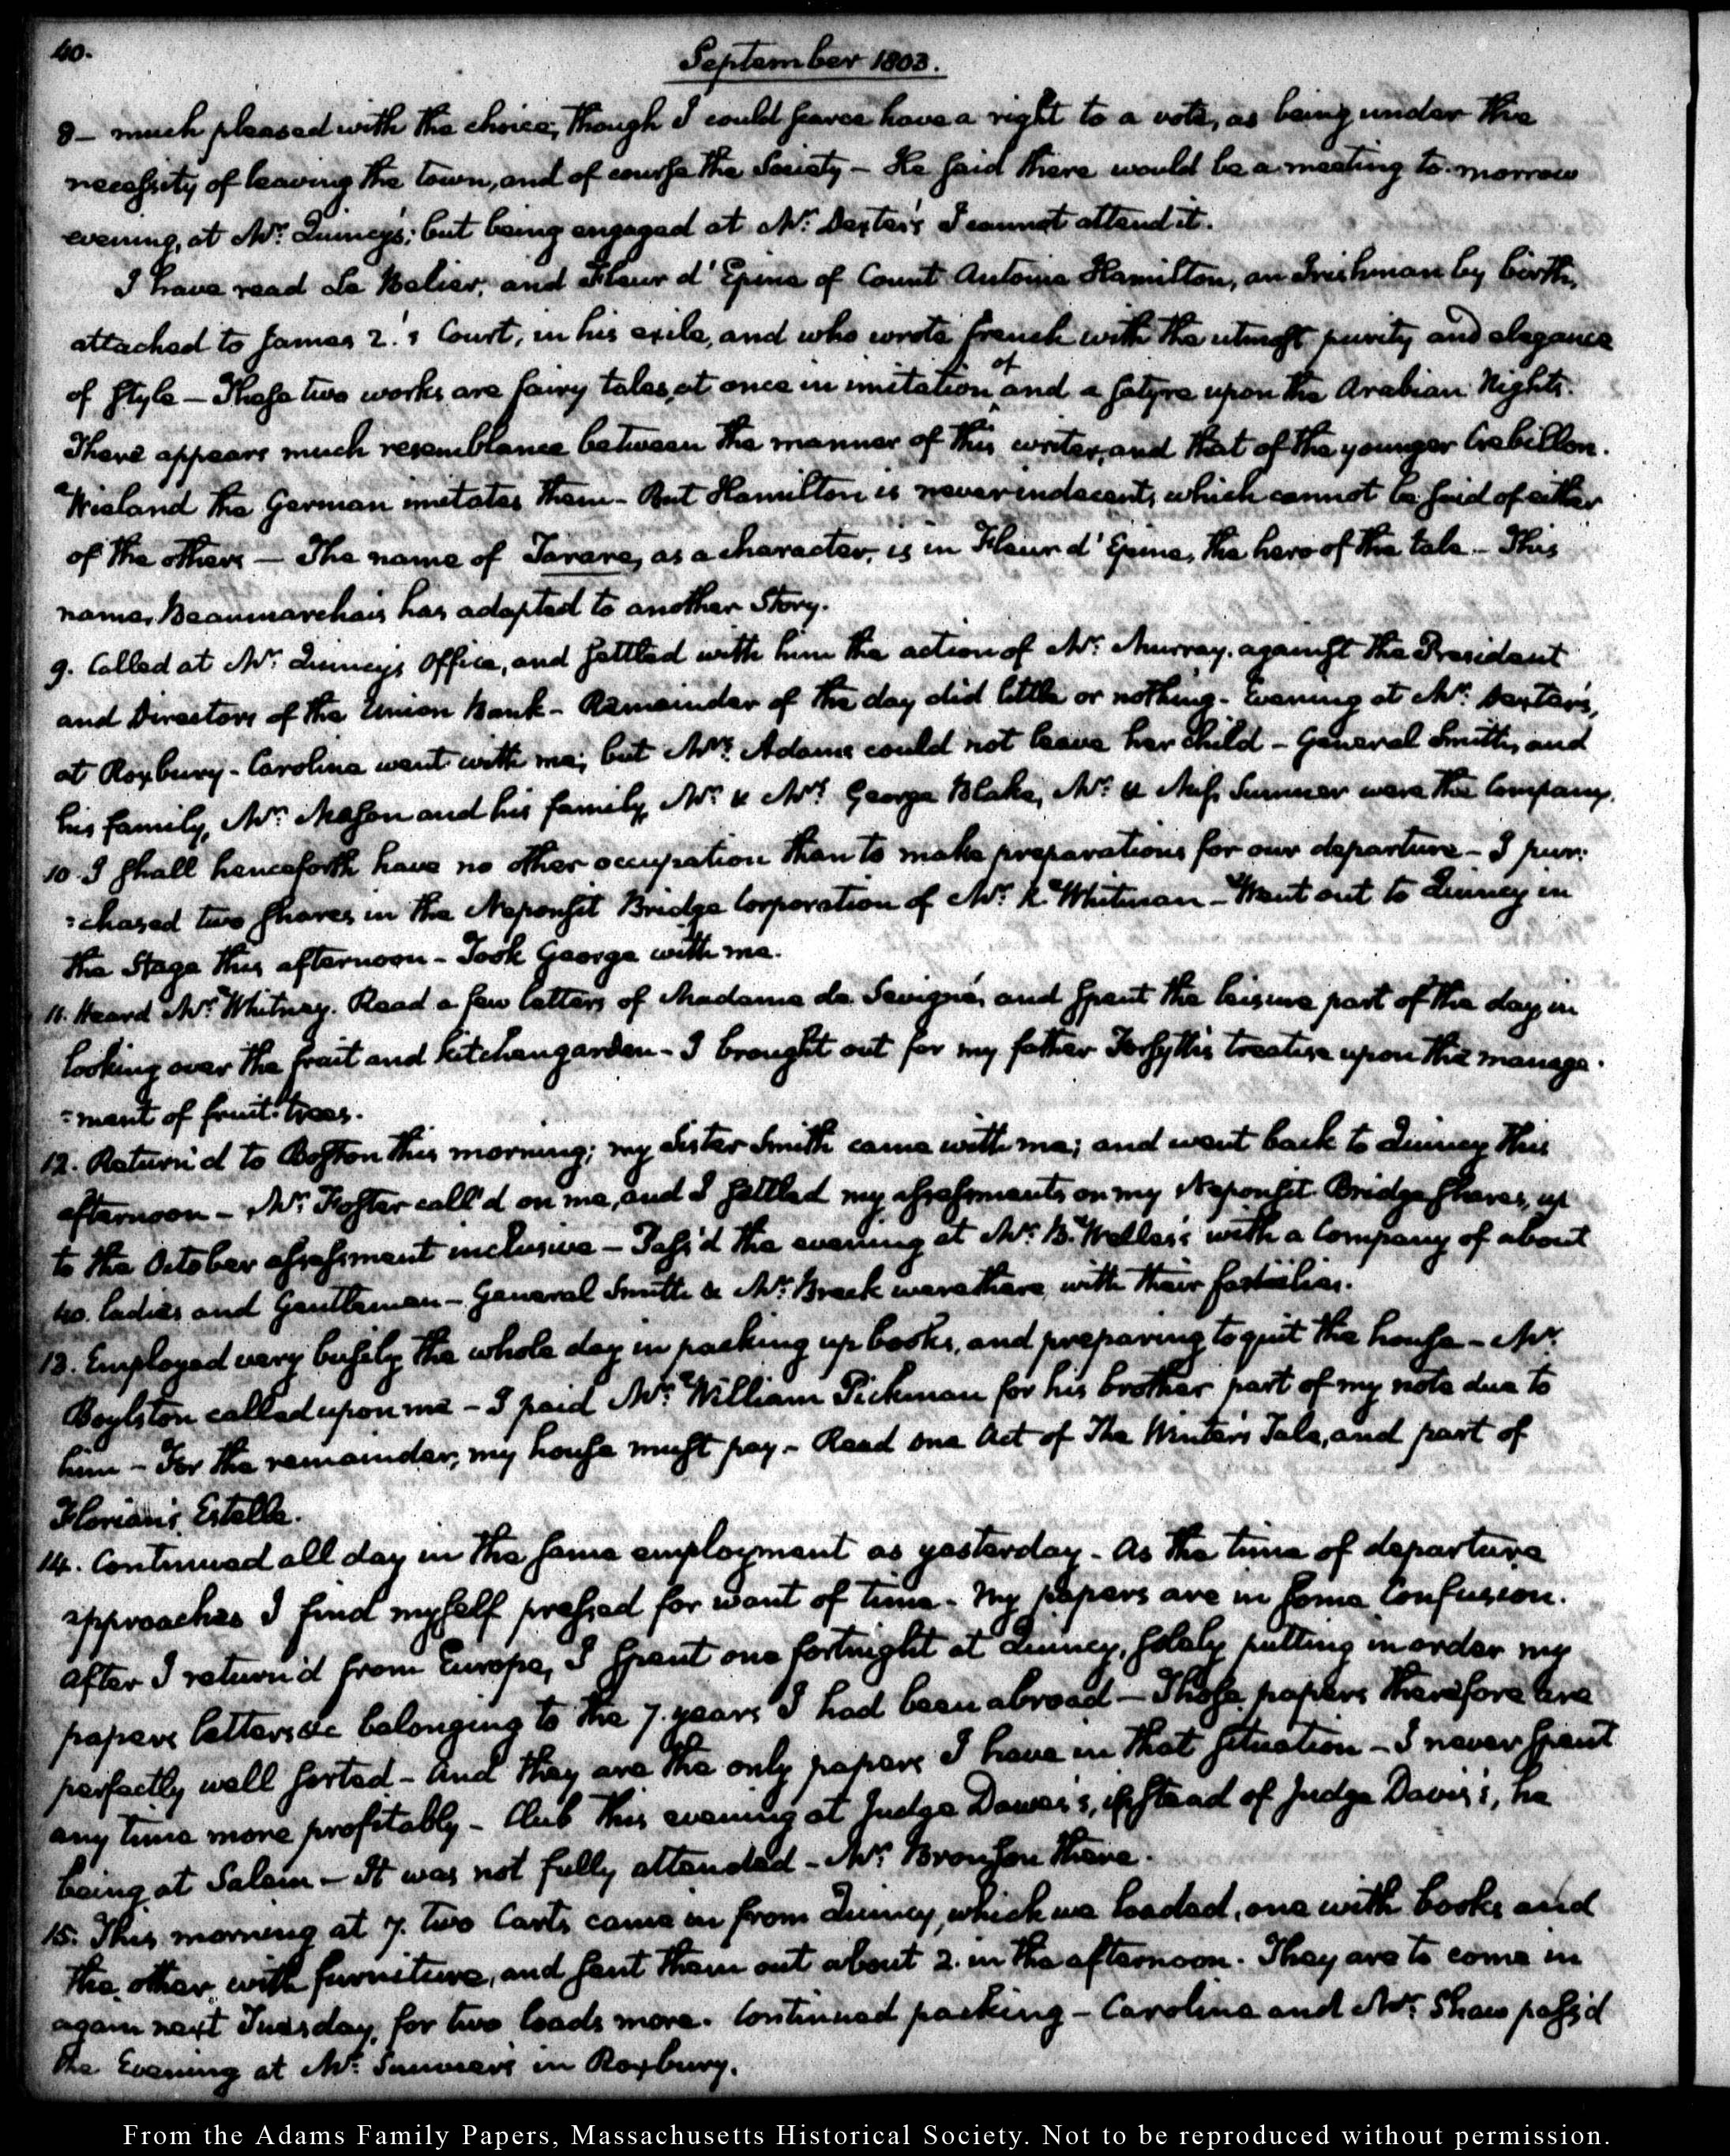 40.
September 1803.
8— much pleased with the choice, though I could scarce have a right to a vote, as being under the
necessity of leaving the town, and of course the Society — He said there would be a meeting to-morrow
evening, at Mr. Quincy's; but being engaged at Mr. Dexter's I cannot attend it.
I have read Le Belier, and Fleur d'Epine of Count Antoine Hamilton, an Irishman by birth,
attached to James 2.'s Court, in his exile, and who wrote french with the utmost purity and elegance
of style — These two works are fairy tales, at once in imitation of and a satyre upon the Arabian Nights.
There appears much resemblance between the manner of this writer, and that of the younger Crebillon.
Wieland the German imitates them — But Hamilton is never indecent, which cannot be said of either
of the others — The name of Tarare, as a character, is in Fleur d'Epine, the hero of the tale — This
name, Beaumarchais has adapted to another Story.
9. Called at Mr. Quincy's Office, and settled with him the action of Mr. Murray, against the President
and Directors of the Union Bank — Remainder of the day did little or nothing — Evening at Mr. Dexter's,
at Roxbury — Caroline went with me; but Mrs. Adams could not leave her child — General Smith, and
his family, Mr. Mason and his family, Mr. & Mrs. George Blake, Mr. & Miss Sumner were the Company.
10. I shall henceforth have no other occupation than to make preparations for our departure — I pur:
:chased two shares in the Neponsit Bridge Corporation of Mr. K. Whitman — Went out to Quincy in
the Stage this afternoon — Took George with me.
11. Heard Mr. Whitney. Read a few letters of Madame de Sevigné, and spent the leisure part of the day in
looking over the fruit and kitchen garden — I brought out for my father Forsyth's treatise upon the manage:
:ment of fruit-trees.
12. Return'd to Boston this morning; my Sister Smith came with me; and went back to Quincy this
afternoon — Mr. Foster call'd on me, and I settled my assessments on my Neponsit Bridge shares, up
to the October assessment inclusive — Pass'd the evening at Mr. B. Welles's with a Company of about
40. ladies and Gentlemen — General Smith & Mr. Breck were there, with their families.
13. Employed very busily the whole day in packing up books, and preparing to quit the house — Mr.
Boylston called upon me — I paid Mr. William Pickman for his brother part of my note due to
him — For the remainder, my house must pay — Read one Act of The Winter's Tale, and part of
Florian's Estelle.
14. Continued all day in the same employment as yesterday — As the time of departure
approaches I find myself pressed for want of time — My papers are in some Confusion.
After I return'd from Europe, I spent one fortnight at Quincy, solely putting in order my
papers letters &c belonging to the 7. years I had been abroad — Those papers therefore are
perfectly well sorted — And they are the only papers I have in that situation — I never spent
any time more profitably — Club this evening at Judge Dawes's, instead of Judge Davis's, he
being at Salem — It was not fully attended — Mr. Bronson there.
15. This morning at 7. two Carts came in from Quincy, which we loaded, one with books and
the other with furniture, and sent them out about 2. in the afternoon. They are to come in
again next Tuesday, for two loads more. Continued packing — Caroline and Mr. Shaw pass'd
the Evening at Mr. Sumner's in Roxbury.
From the Adams Family Papers, Massachusetts Historical Society. Not to be reproduced without permission.